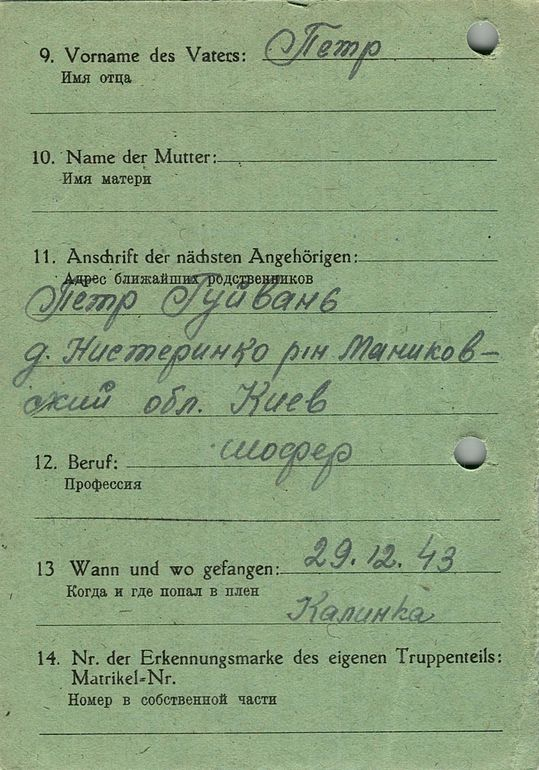 9. Vorname des Vaters: Петр
Имя отца
10. Name der Mutter:
Имя матери
11. Anschrift der nächsten Angehörigen:
Адрес ближайших родственников
Петр Гуйвань
д. Нистеринко рін Маников-
ский обл. Киев
12. Beruf: шофер
Профессия
13 Wann und wo gefangen: 29.12.43
Когда и где попал в плен
Калинка
14. Nr. der Erkennungsmarke des eigenen Truppenteils:
Matrikel-Nr.
Номер в собственной части